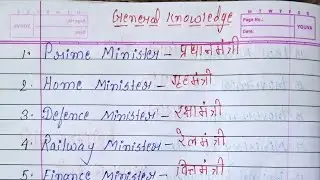 General Knowledge
Page No.
Date:
YOUVA
1. Prime Minister - प्रधानमंत्री
2. Home Minister - गृहमंत्री
3. Defence Minister - रक्षामंत्री
4. Railway Minister - रेलमंत्री
5. Finance Minister - वित्तमंत्री